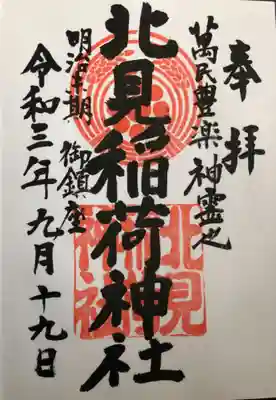 奉拝
萬民豐楽神霊之
北見稲荷神社
明治十期
御鎮座
令和三年九月十九日
北見
神社